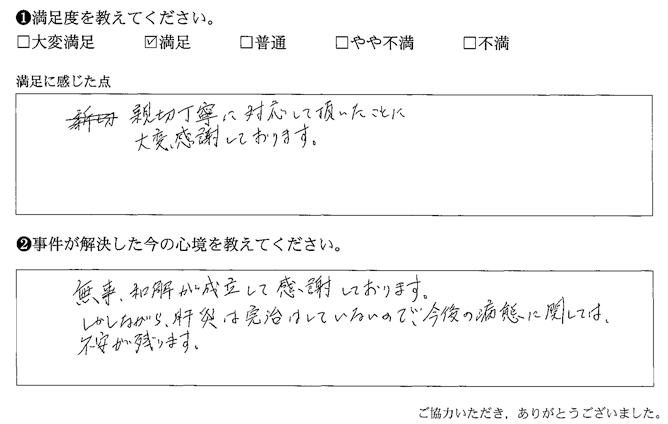 ❶満足度を教えてください。
□大変満足 ☑満足 □普通 □やや不満 □不満
満足に感じた点
新切 親切丁寧に対応して頂いたことに
大変感謝しております。
❷事件が解決した今の心境を教えてください。
無事、和解が成立して感謝しております。
しかしながら、肝炎は完治はしていないので、今後の病態に関しては、
不安が残ります。
ご協力いただき，ありがとうございました。